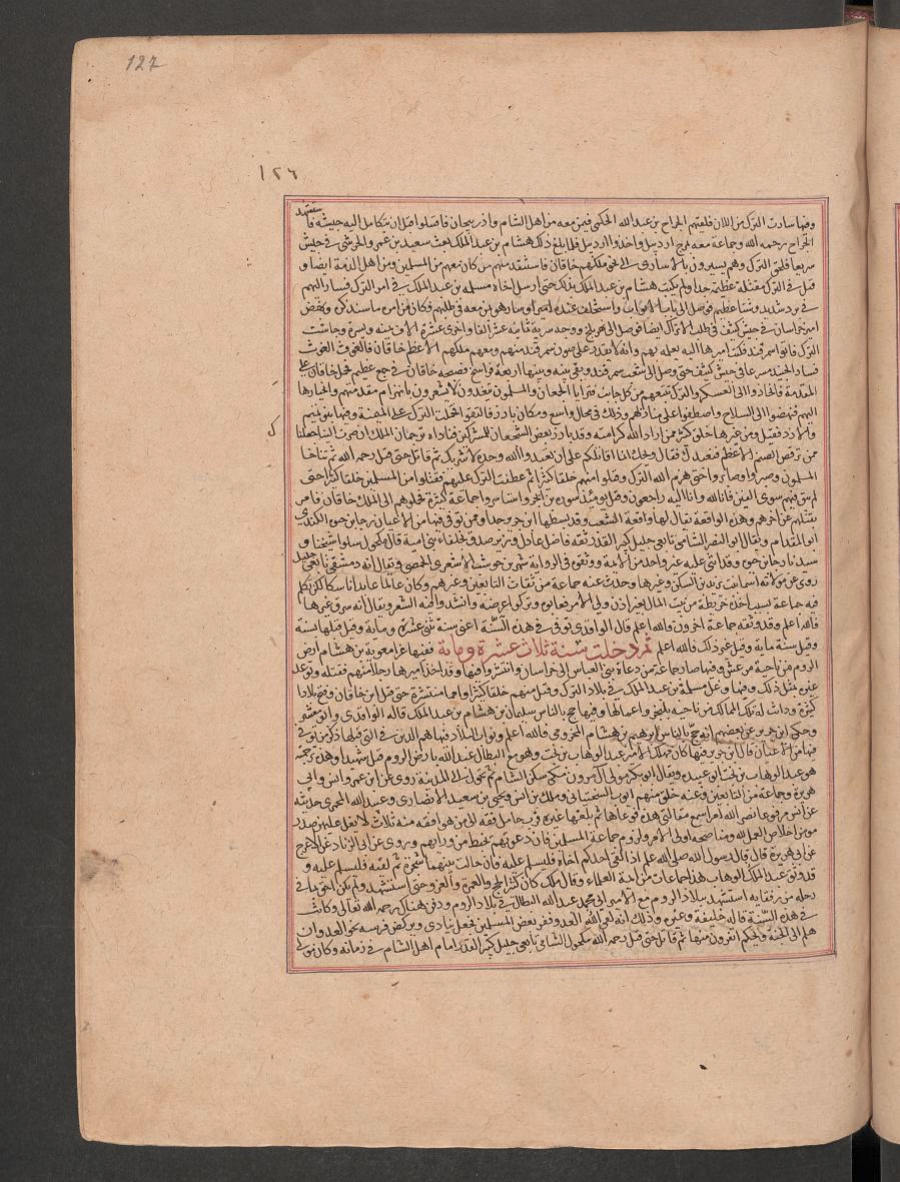 127
١٢٦
وفيها سارت الترك من اللان فلقيهم الجراح بن عبد الله الحكمي فيمن معه من اهل الشام واذربيجان فاقتتلوا قبل ان يتكامل اليه جيشه فاستشهد
الجراح رحمه الله وجماعة معه بمرج اردبيل واخذوا اردبيل فلما بلغ ذلك هشام بن عبد الملك بعث سعيد بن عمرو الحرشي في جيش
سريعا فلحق الترك وهم يسيرون بالاسارى الى نحو ملكهم خاقان فاستنقذ منهم من كان معهم من المسلمين ومن اهل الذمة ايضا و
قتل في الترك مقتلة عظيمة جدا ولم يكتف هشام بن عبد الملك بذلك حتى ارسل اخاه مسلمة بن عبد الملك في اثر الترك فسار اليهم
في برد شديد وشتا عظيم فوصل الى باب الابواب واستخلف عنده اميرا وسار هو بمن معه في طلبهم فكان من امره ما سنذكره ونهض
امير خراسان في جيش كثيف في طلب الاتراك ايضا فوصل الى نهر بلخ ووجه سرية ثمانية عشر الفا واخرى عشرة الاف يمنة ويسرة وجاشت
الترك فاتوا سمرقند فكتب اميرها اليه يعلمه بهم وانه لا يقدر على صون سمرقند منهم ومعهم ملكهم الاعظم خاقان فالغوث الغوث
فسار الجنيد مسرعا في جيش كثيف حتى وصل الى شعب سمرقند وبقي بينه وبينها اربعة فراسخ فصبحه خاقان في جمع عظيم فحمل خاقان على
المقدمة فانحازوا الى العسكر والترك تتبعهم من كل جانب فتراءا الجمعان والمسلمون يتغدون لا يشعرون بانهزام مقدمتهم وانحيازها
اليهم فنهضوا الى السلاح واصطفوا على منازلهم وذلك في مجال واسع ومكان بارز فالتقوا فحملت الترك على الميمنة وفيها بنو تميم
والازد فقتل منهم ومن غيرها خلق كثير ممن اراد الله كرامته وقد بارز بعض الشجعان للمشركين فناداه ترجمان الملك ان صرت الينا جعلناك
ممن يرقص لصنم الاعظم فنعبدك فقال ويحك انا اقاتلكم على ان تعبدوا الله وحده لا شريك له ثم قاتل حتى قتل رحمه الله ثم تناخا
المسلمون وصبروا وصابروا حتى هزم الله الترك وقتلوا منهم خلقا كثيرا ثم عطفت الترك عليهم فقتلوا من المسلمين خلقا كثيرا حتى
لم يبق فيهم سوى الفين فانا لله وانا اليه راجعون وقتل يومئذ سورة بن ابجر واستاسروا جماعة كثيرة فحملوهم الى الملك خاقان فامر
بقتلهم عن اخرهم وهذه الواقعة يقال لها واقعة الشعب وقد بسطها ابن جرير جدا وممن توفي فيها من الاعيان رجا بن حيوة الكندي
ابو المقدام ويقال ابو النصر الشامي تابعي جليل كبير القدر ثقة فاضل عادل وزير صدق لخلفاء بني امية قال مكحول سلوا شيخنا و
سيدنا رجا بن حيوة وقد اثنى عليه غير واحد من الائمة ووثقوه في الرواية شهر بن حوشب الاشعري الحمصي ويقال انه دمشقي تابعي جليل
روى عن مولاته اسما بنت يزيد بن السكن وغيرها وحدث عنه جماعة من ثقات التابعين وغيرهم وكان عالما عابدا ناسكا لكن تكلم
فيه جماعة بسبب اخذه خريطة من بيت المال بغير اذن ولي الامر فعابوه وتركوا عرضه وانشدوا فيه الشعر ويقال انه سرق غيرها
فالله اعلم وقد وثقه جماعة اخرون والله اعلم قال الواقدي توفي في هذه السنة اعني سنة ثنتي عشرة وماية وقيل قبلها بسنة
وقيل سنة ماية وقيل غير ذلك فالله اعلم ثم دخلت سنة ثلاث عشرة وماية ففيها غزا معاوية بن هشام ارض
الروم من ناحية مرعش وفيها صار جماعة من دعاة بني العباس الى خراسان وانتشروا فيها وقد اخذ اميرها رجلا منهم فقتله وتوعد
غيره بمثل ذلك وفيها وغل مسلمة بن عبد الملك في بلاد الترك وقتل منهم خلقا كثيرا وامما منتشرة حتى قتل ابن خاقان وفتح بلادا
كثيرة ودانت له تلك الممالك من ناحية بلنجر واعمالها وفيها حج بالناس سليمان بن هشام بن عبد الملك قاله الواقدي وابو معشر
وحكى ابن جرير عن بعضهم انه حج بالناس ابرهيم بن هشام المخزومي فالله اعلم ونواب البلاد فيها هم الذين في التي قبلها ذكر من توفي
فيها من الاعيان قال ابن جرير فيها كان مهلك الامير عبد الوهاب بن بخت وهو مع البطال عبد الله بارض الروم قتل شهيدا وهذه ترجمته
هو عبد الوهاب بن بخت ابو عبيدة ويقال ابو بكر مولى آل مروان مكي سكن الشام ثم تحول الى المدينة روى عن ابن عمر وانس وابي
هريرة وجماعة من التابعين وعنه خلق منهم ايوب السختياني وملك بن انس ويحيى بن سعيد الانصاري وعبيد الله العمري حديثه
عن انس مرفوعا نضر الله امرا سمع مقالتي هذه فوعاها ثم بلغها غيره فرب حامل فقه الى من هو افقه منه ثلاث لا يغل عليهن صدر
مومن اخلاص العمل لله ومناصحة اولي الامر ولزوم جماعة المسلمين فان دعوتهم تحيط من ورائهم وروى عن ابي الزناد عن الاعرج
عن ابي هريرة قال قال رسول الله صلى الله عليه اذا لقي احدكم اخاه فليسلم عليه فان حالت بينهما شجرة ثم لقيه فليسلم عليه و
قد وثق عبد الوهاب هذا جماعات من ائمة العلماء وقال ملك كان كثير الحج والعمرة والغزو حتى استشهد ولم يكن احق بما في
رحله من رفقايه استشهد ببلاد الروم مع الامير ابي محمد عبد الله البطال في بلاد الروم ودفن هناك رحمه الله تعالى وكانت
في هذه السنة قاله خليفة وغيره وذلك انه لقي العدو ففر بعض المسلمين فجعل ينادي ويركض فرسه نحو العدو ان
هلم الى الجنة ويحكم اتفرون منها ثم قاتل حتى قتل رحمه الله مكحول الشامي تابعي جليل كبير القدر امام اهل الشام في زمانه وكان مولى